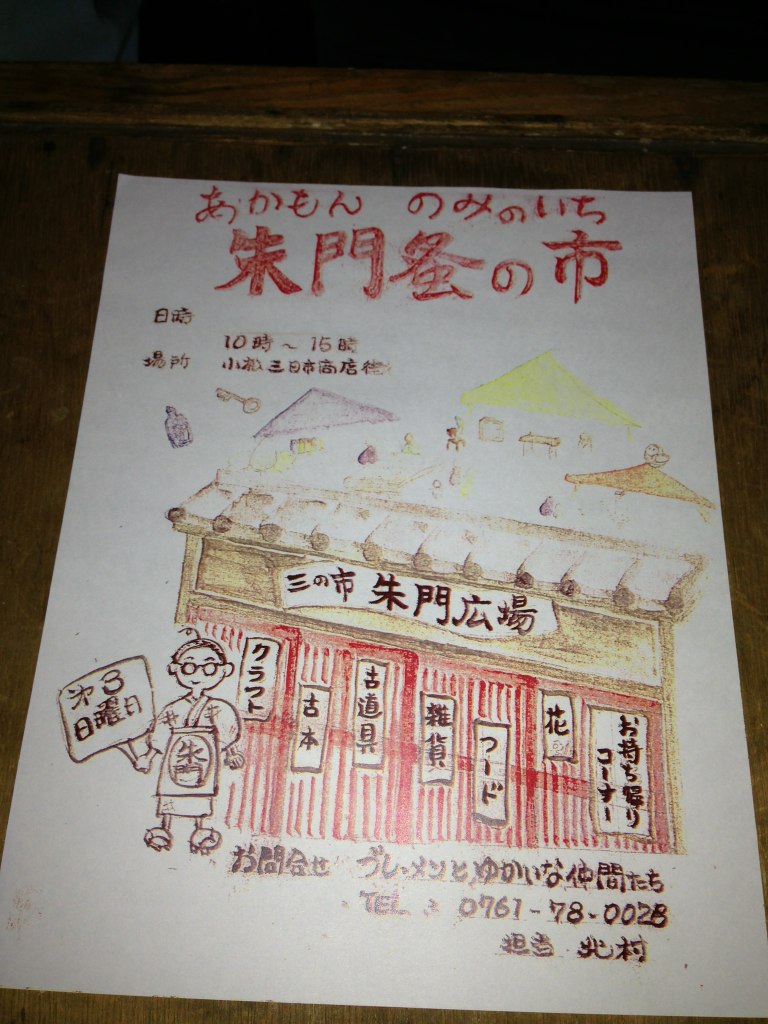 あかもん のみのいち
朱門蚤の市
日時
10時～15時
場所 小松三日市商店街
三の市 朱門広場
第3
日曜日
朱門
クラフト
古本
古道具
雑貨
フード
花
お持ち帰り
コーナー
お問合せ ブレーメンとゆかいな仲間たち
TEL : 0761-78-0028
担当 北村